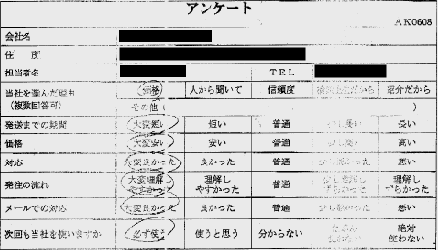 アンケート
AK0608
会社名
住 所
担当者名 TEL
当社を選んだ理由 価格 人から聞いて 信頼度 紹介だから
(複数回答可) その他( )
発送までの期間 大変短い 短い 普通 長い
価格 大変安い 安い 普通 高い
対応 大変良かった 良かった 普通 悪い
発注の流れ 大変理解しやすかった 理解しやすかった 普通 理解しづらかった
メールでの対応 大変良かった 良かった 普通 悪い
次回も当社を使いますか 必ず使う 使うと思う 分からない 絶対使わない